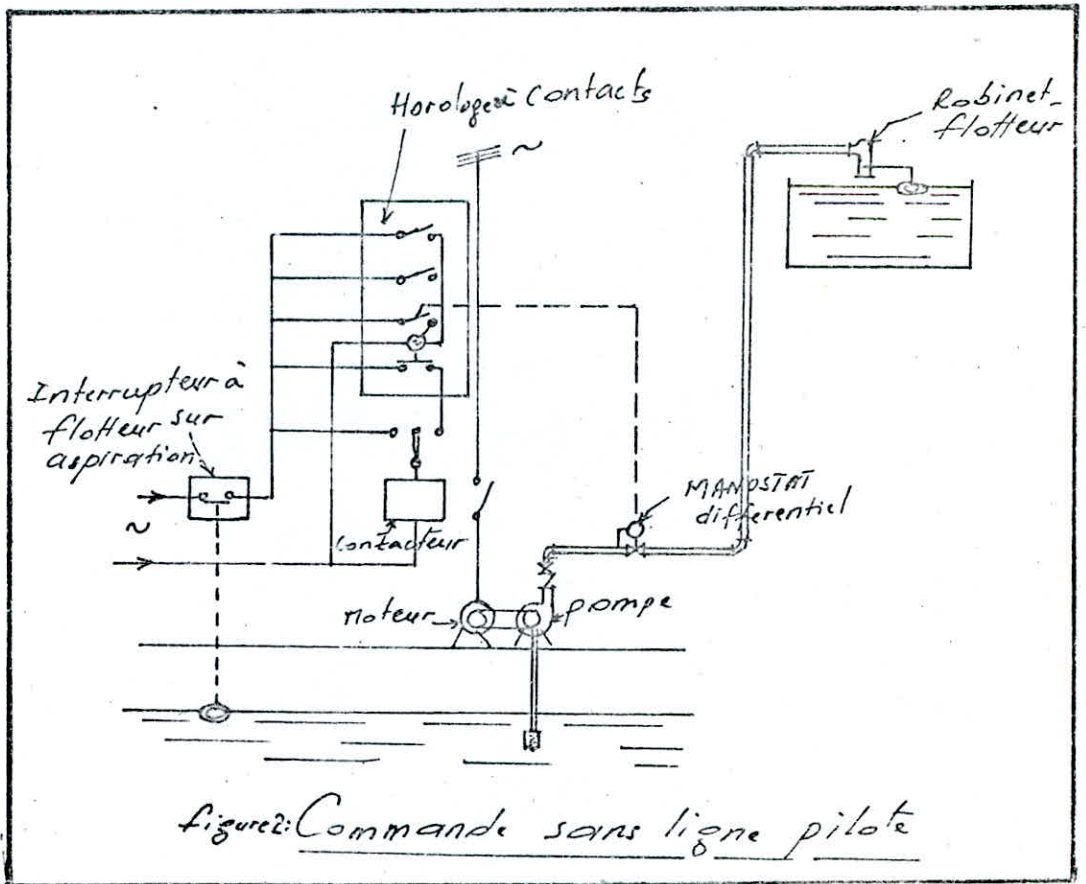 Horloge à Contacts
~
Robinet-
flotteur
Interrupteur à
flotteur sur
aspiration
~
Contacteur
MANOSTAT
différentiel
Moteur
pompe
figure2: Commande sans ligne pilote